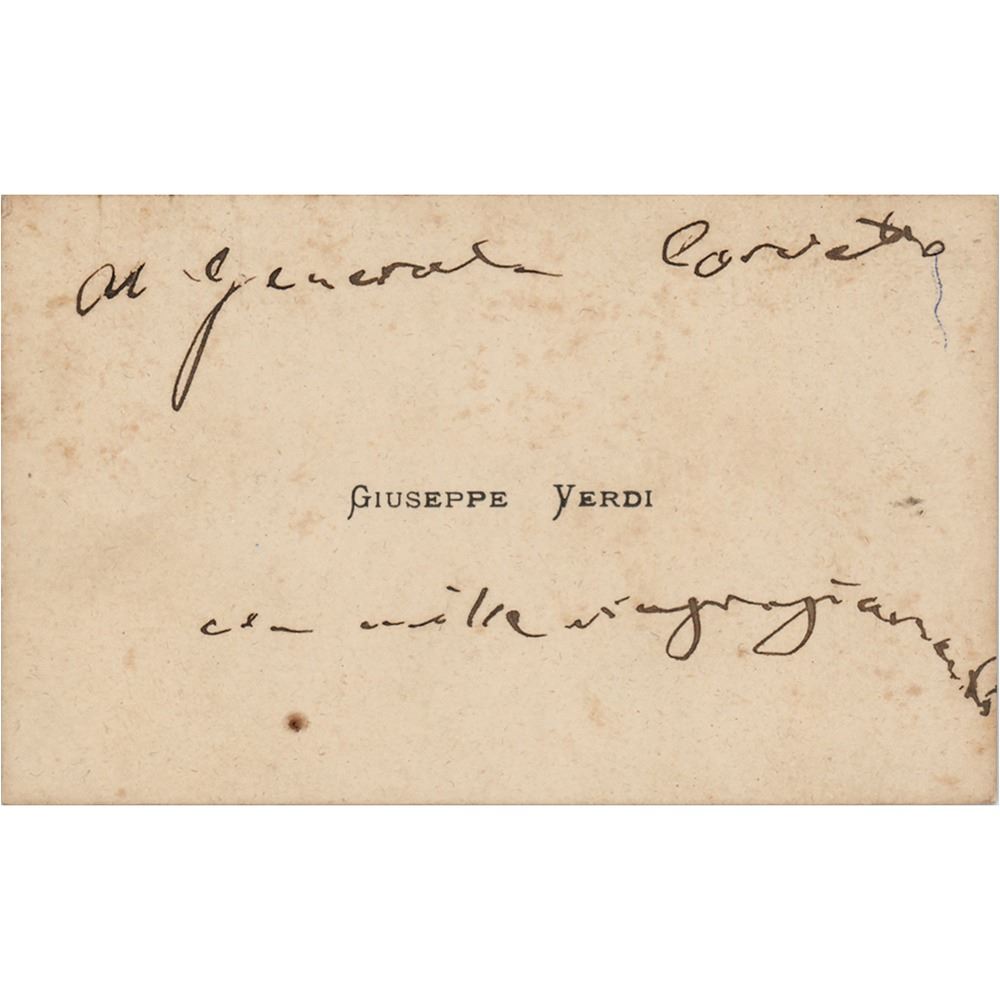 Al Generale Corvetto
GIUSEPPE VERDI
con mille ringraziamenti